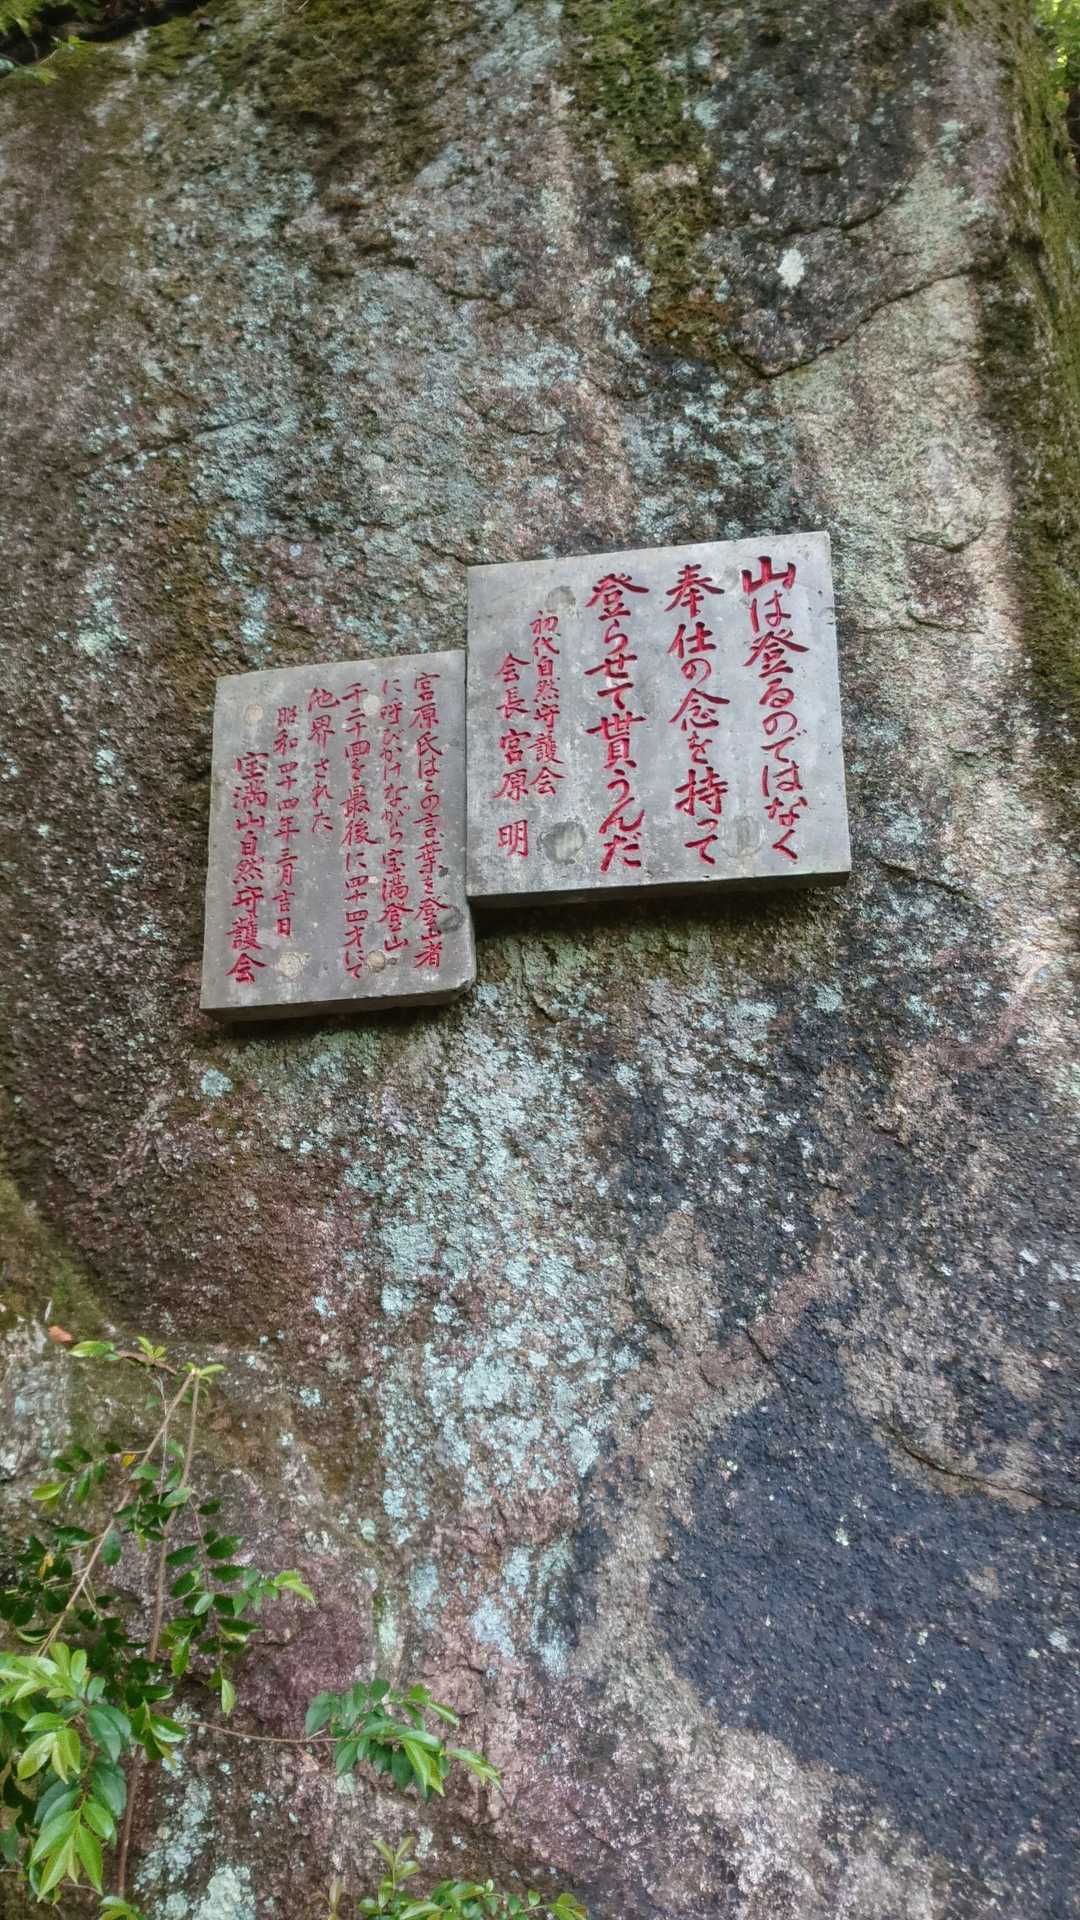 山は登るのではなく
奉仕の念を持って
登らせて貰うんだ
初代自然守護会
会長 宮原 明
宮原氏はこの言葉を登山者
に呼びかけながら宝満登山
千二十四を最後に四十四才にて
他界された
昭和四十四年三月吉日
宝満山自然守護会